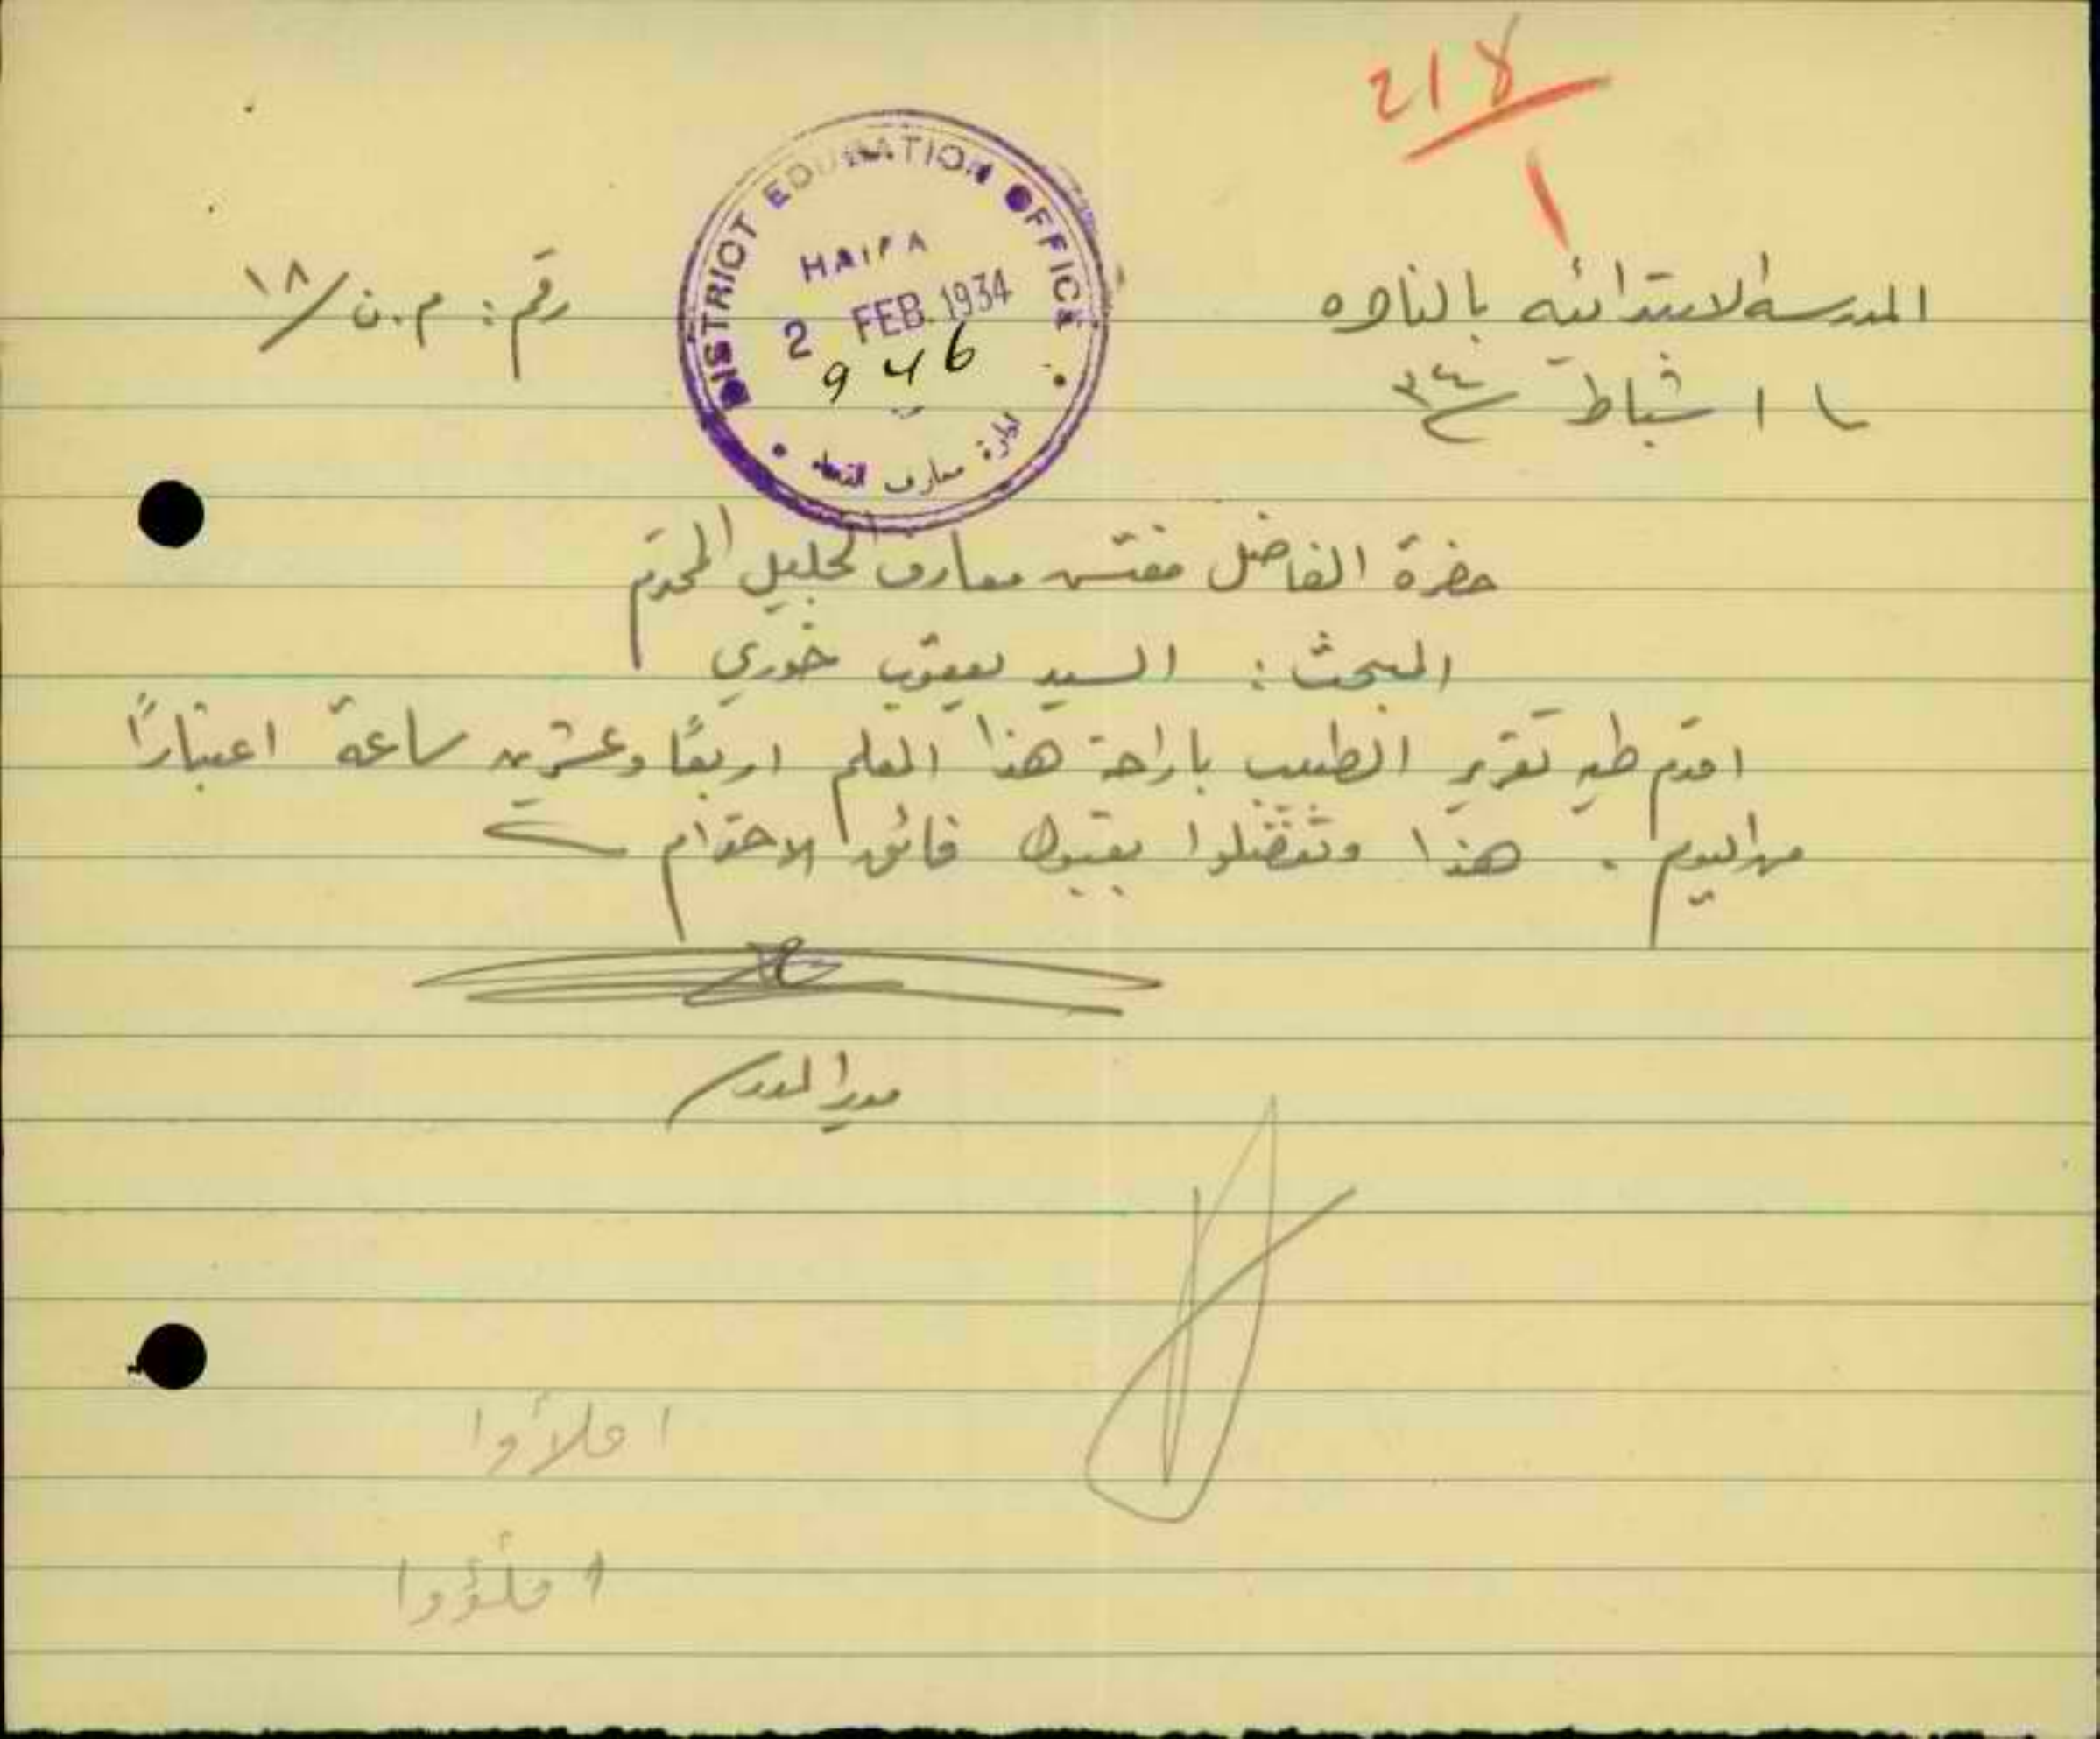 218
المدرسة الابتدائية بالناصره
١ شباط ٣٤
رقم: م.ن/١٨
DISTRICT EDUCATION OFFICE
HAIFA
2 FEB. 1934
946
ادارة معارف
حضرة الفاضل مفتش معارف الجليل المحترم
المبحث: السيد يعقوب خوري
اقدم طيه تقرير الطبيب باراحة هذا المعلم اربعًا وعشرين ساعة اعتبارًا
من اليوم. هذا وتفضلوا بقبول فائق الاحترام
مدير المدرسة
املأوا
املؤوا